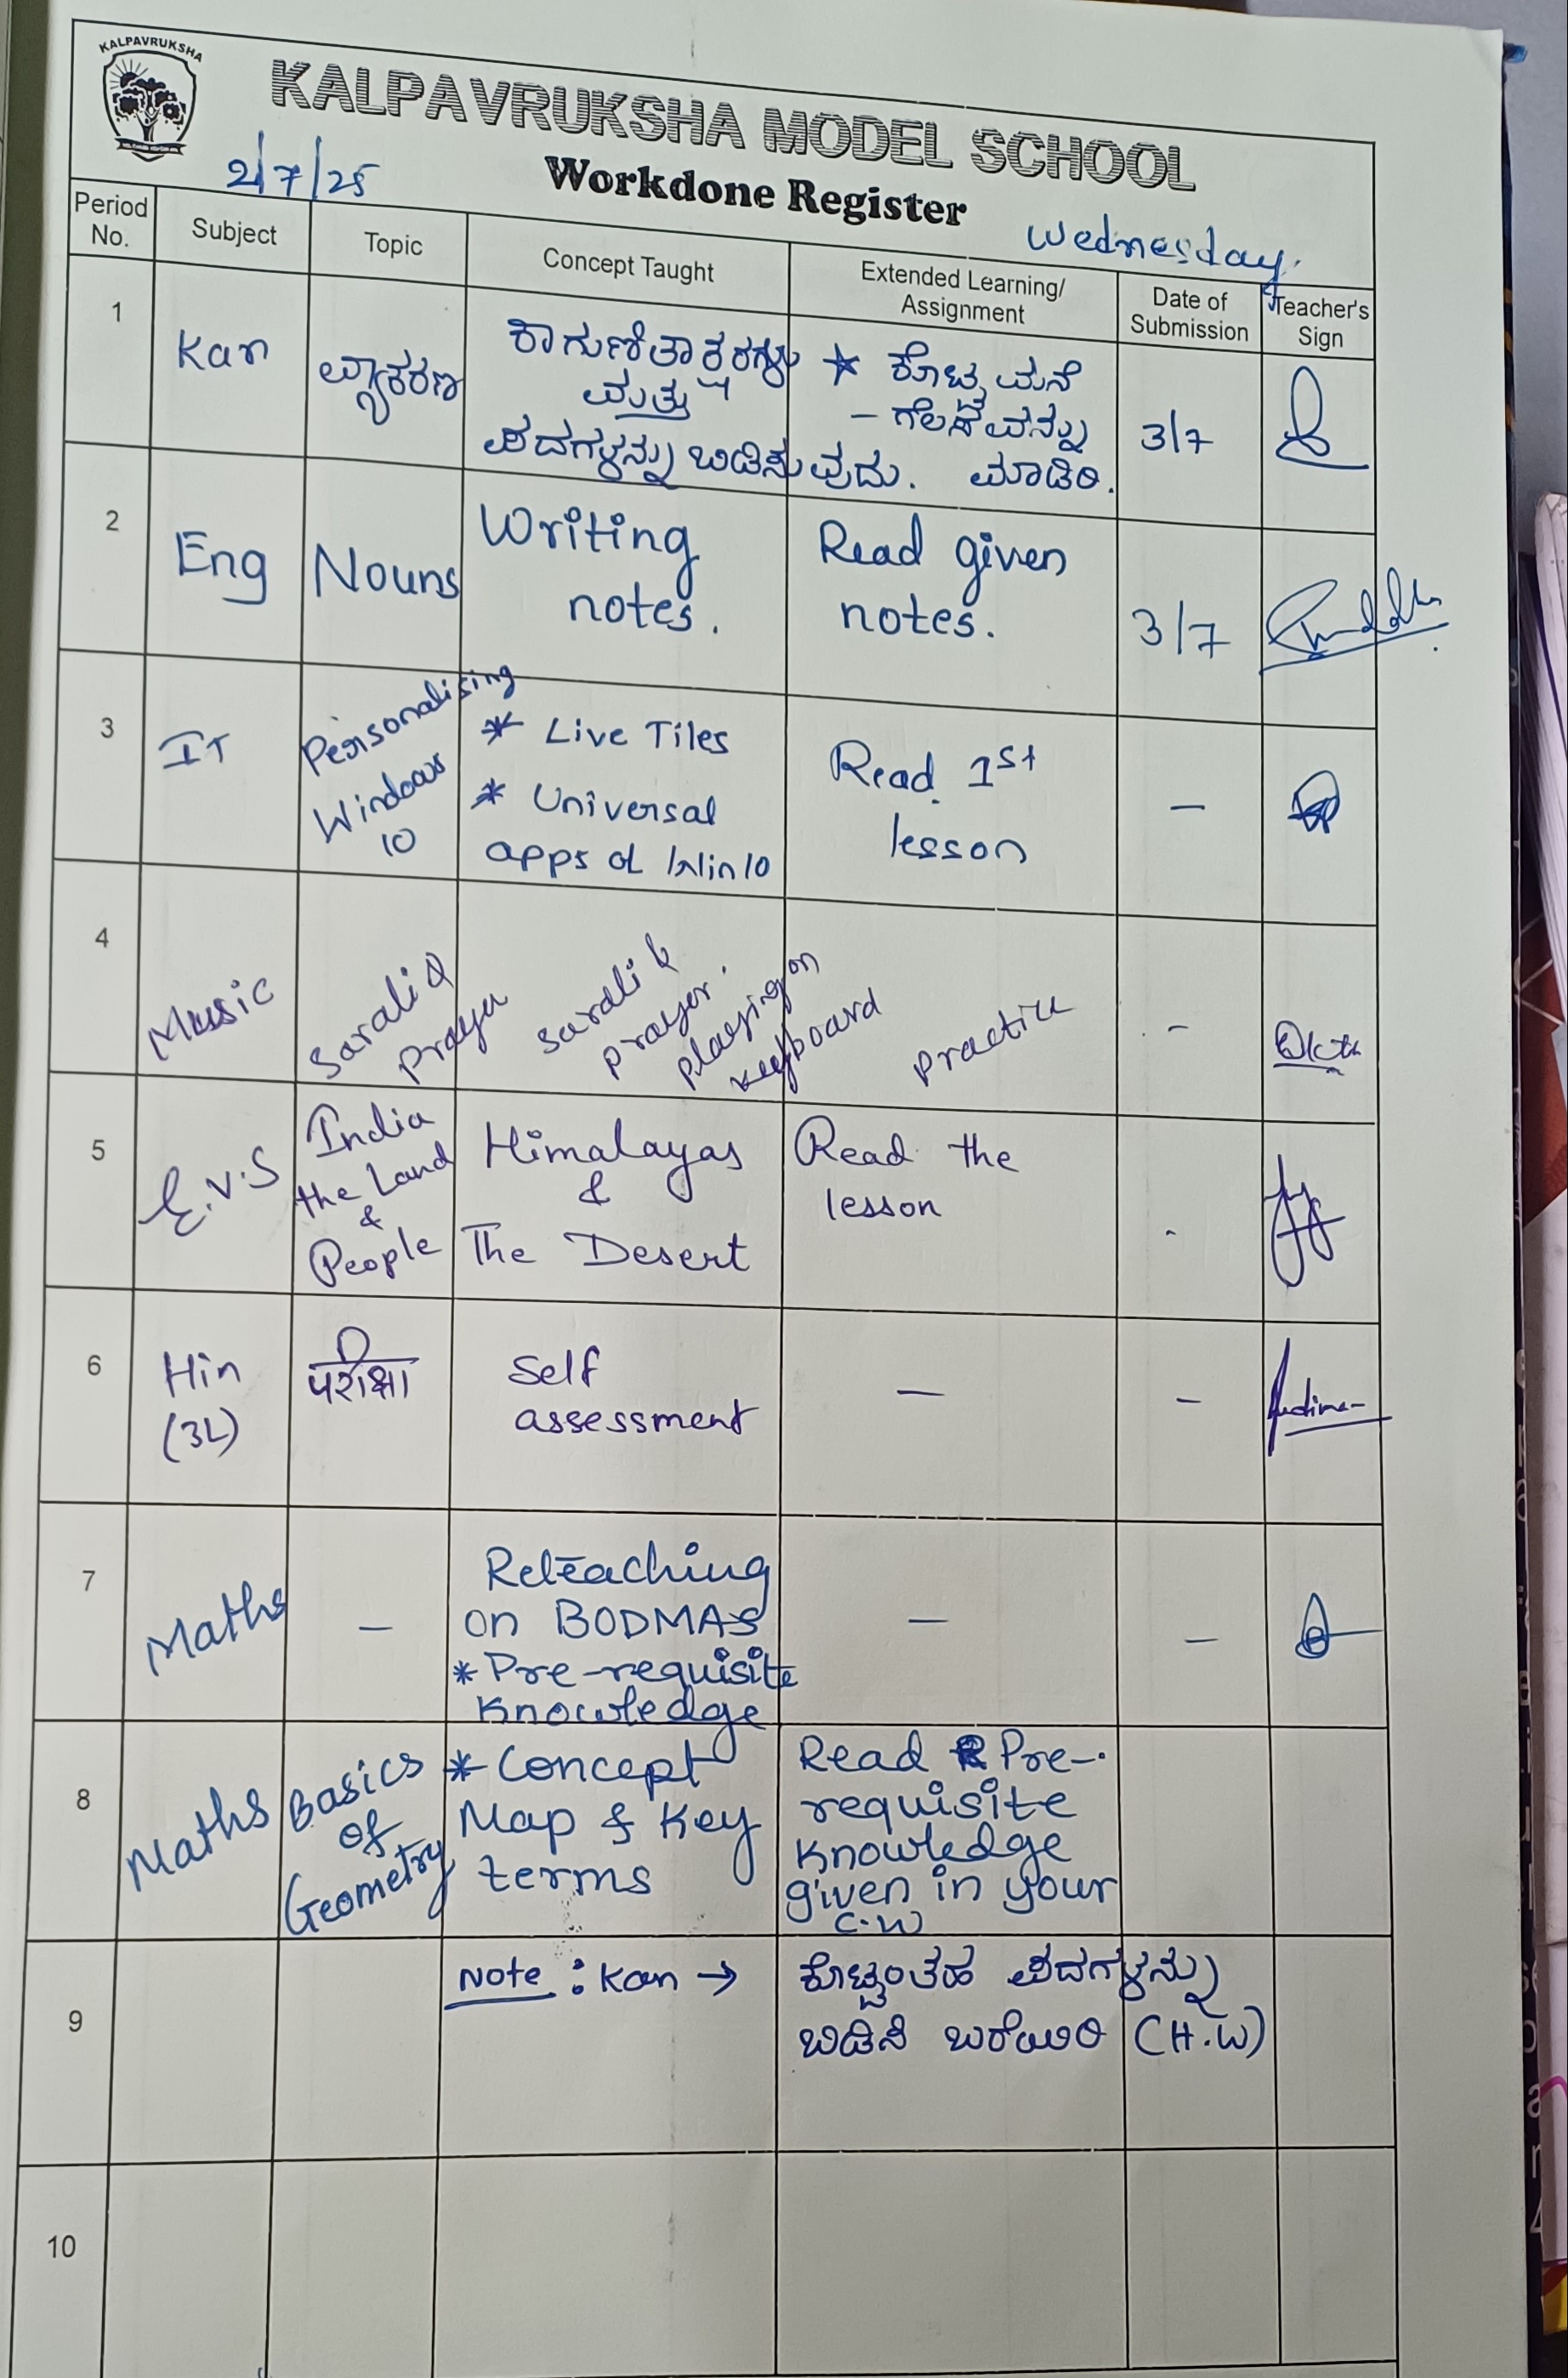 KALPAVRUKSHA
KALPAVRUKSHA MODEL SCHOOL
2/7/25
Workdone Register
Wednesday.
Period No.
Subject
Topic
Concept Taught
Extended Learning/
Assignment
Date of
Submission
Teacher's
Sign
1
Kan
ವ್ಯಾಕರಣ
ಕಾಗುಣಿತಾಕ್ಷರಗಳು
ಮತ್ತು
ಪದಗಳನ್ನು ಬಿಡಿಸುವುದು.
* ಕೊಟ್ಟ ಮನೆ
- ಗೆಲಸವನ್ನು
ಮಾಡಿರಿ.
3/7
2
Eng
Nouns
Writing
notes.
Read given
notes.
3/7
3
IT
Personalising
Windows
10
* Live Tiles
* Universal
apps of Win10
Read 1st
lesson
-
4
Music
Sarali &
prayer
Sarali &
prayer.
playing on
keyboard
practice
-
5
E.V.S
India
the Land
&
People
Himalayas
&
The Desert
Read the
lesson
-
6
Hin
(3L)
परीक्षा
Self
assessment
-
-
7
Maths
-
Reteaching
on BODMAS
* Pre-requisite
Knowledge
-
-
8
Maths
Basics
of
Geometry
* Concept
Map & Key
terms
Read Pre-
requisite
Knowledge
given in your
C.W
9
Note : Kan →
ಕೊಟ್ಟಂತಹ ಪದಗಳನ್ನು
ಬಿಡಿಸಿ ಬರೆಯಿರಿ (H.W)
10